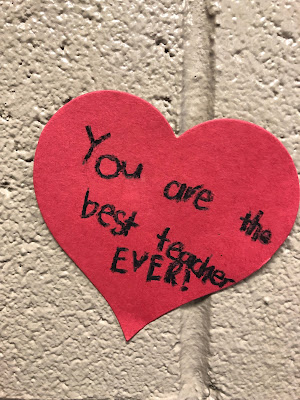 You are the
best teacher
EVER!